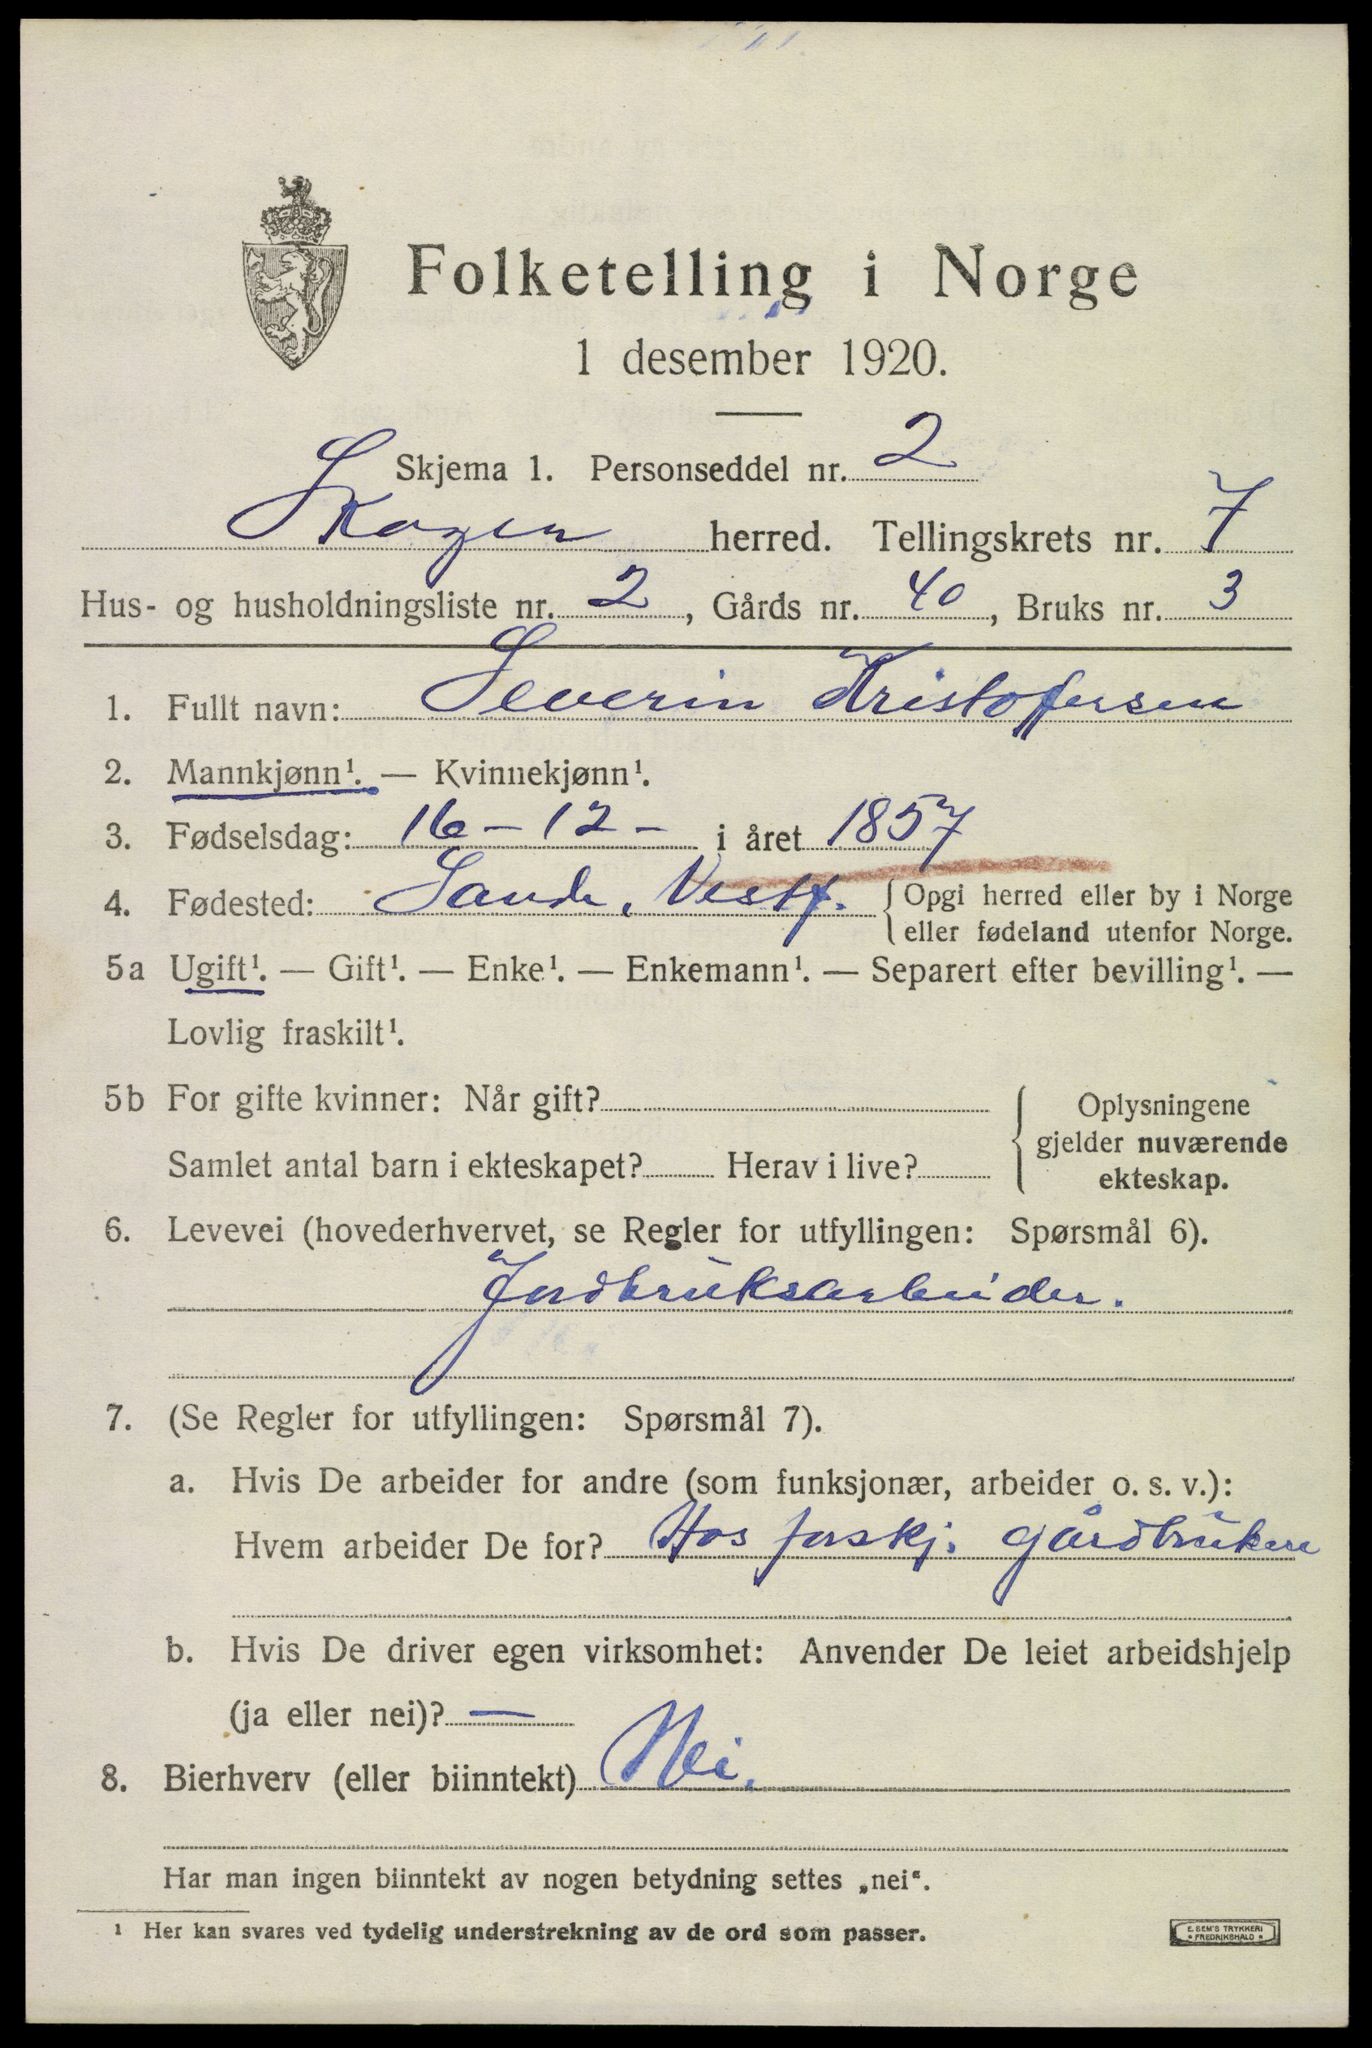 Folketelling i Norge
1 desember 1920.
Skjema 1. Personseddel nr. 2
Skoger herred. Tellingskrets nr. 7
Hus- og husholdningsliste nr. 2, Gårds nr. 40, Bruks nr. 3
1. Fullt navn: Severin Kristoffersen
2. Mannkjønn¹. — Kvinnekjønn¹.
3. Fødselsdag: 16 – 12 – i året 1857
4. Fødested: Sande, Vestf. { Opgi herred eller by i Norge
eller fødeland utenfor Norge.
5a Ugift¹. — Gift¹. — Enke¹. — Enkemann¹. — Separert efter bevilling¹. —
Lovlig fraskilt¹.
5b For gifte kvinner: Når gift?
Samlet antal barn i ekteskapet? Herav i live?
{ Oplysningene
gjelder nuværende
ekteskap.
6. Levevei (hovederhvervet, se Regler for utfyllingen: Spørsmål 6).
Jordbruksarbeider.
7. (Se Regler for utfyllingen: Spørsmål 7).
a. Hvis De arbeider for andre (som funksjonær, arbeider o. s. v.):
Hvem arbeider De for? Hos forskj. gårdbrukere
b. Hvis De driver egen virksomhet: Anvender De leiet arbeidshjelp
(ja eller nei)? —
8. Bierhverv (eller biinntekt) Nei.
Har man ingen biinntekt av nogen betydning settes „nei“.
¹ Her kan svares ved tydelig understrekning av de ord som passer.
E. SEM'S TRYKKERI
• FREDRIKSHALD •